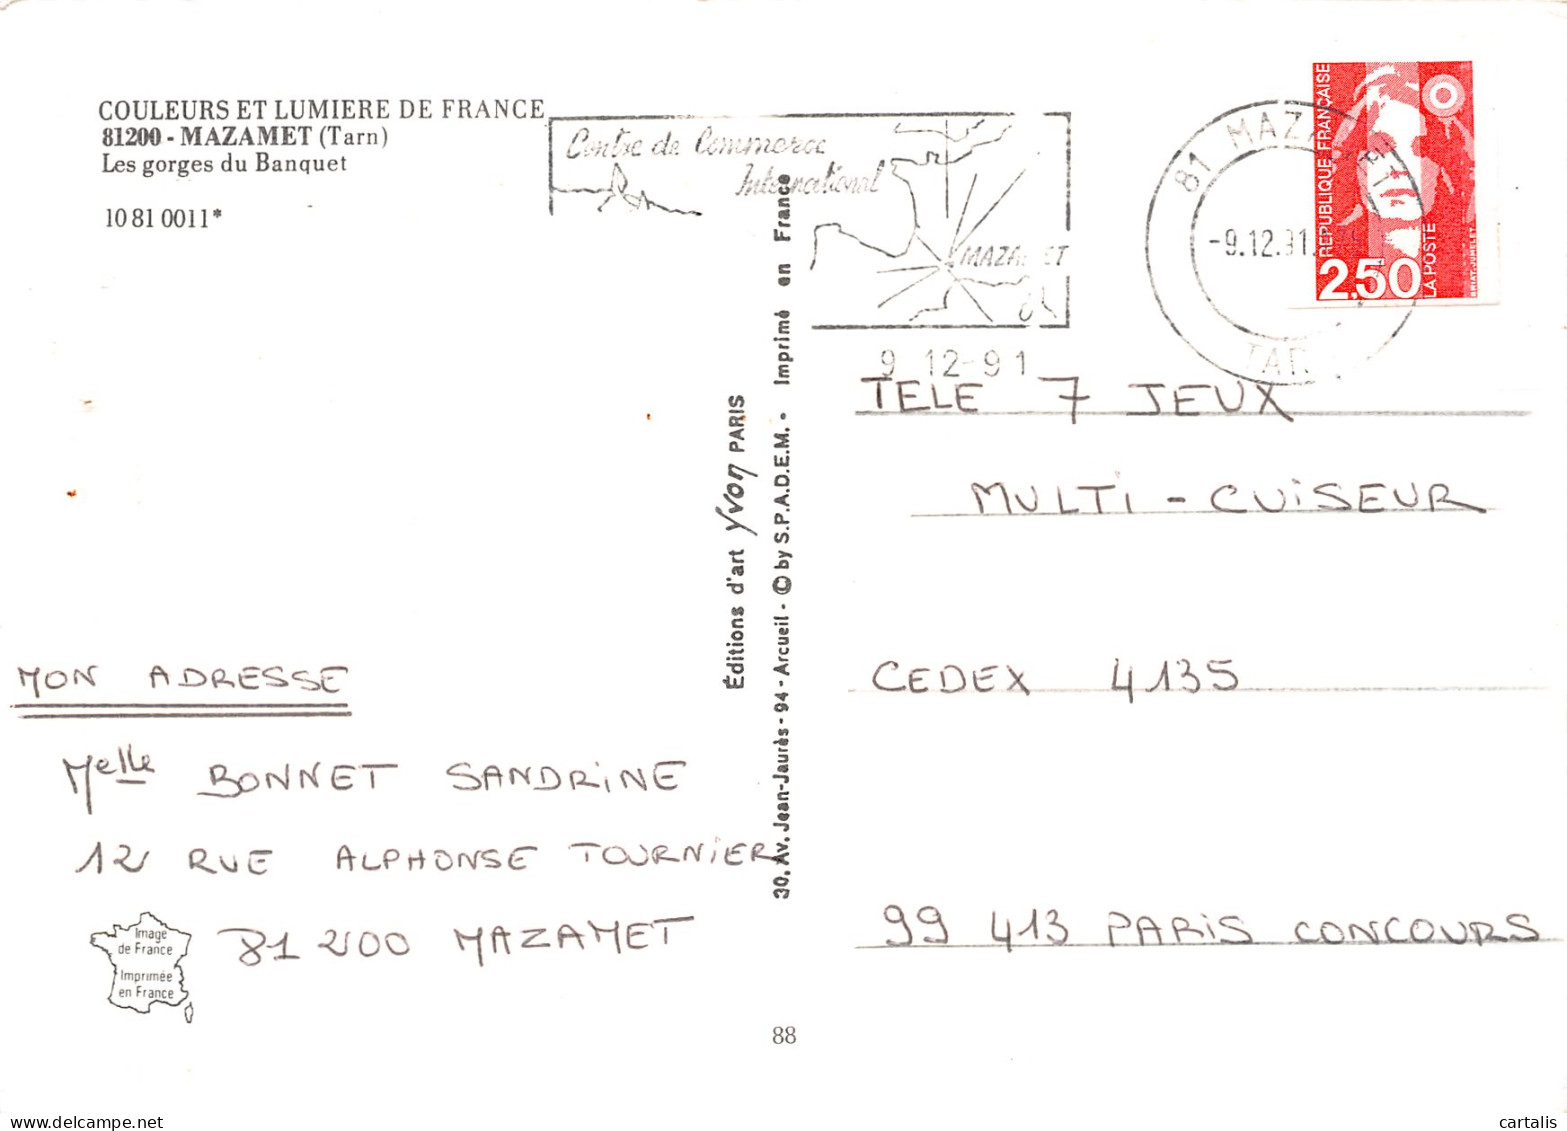 COULEURS ET LUMIERE DE FRANCE
81200 - MAZAMET (Tarn)
Les gorges du Banquet
10 81 0011*
Centre de Commerce
International
MAZAMET
9 12-91
81 MAZAMET
-9.12.91.
TARN
REPUBLIQUE FRANÇAISE
2,50
LA POSTE
Éditions d'art yvon PARIS
30, Av. Jean-Jaurès - 94 - Arcueil - © by S.P.A.D.E.M. - Imprimé en France
TELE 7 JEUX
MULTI - CUISEUR
CEDEX 4135
99 413 PARIS CONCOURS
MON ADRESSE
Melle BONNET SANDRINE
12 RUE ALPHONSE TOURNIER
81 200 MAZAMET
Image
de France
Imprimée
en France
88
cartalis
delcampe.net